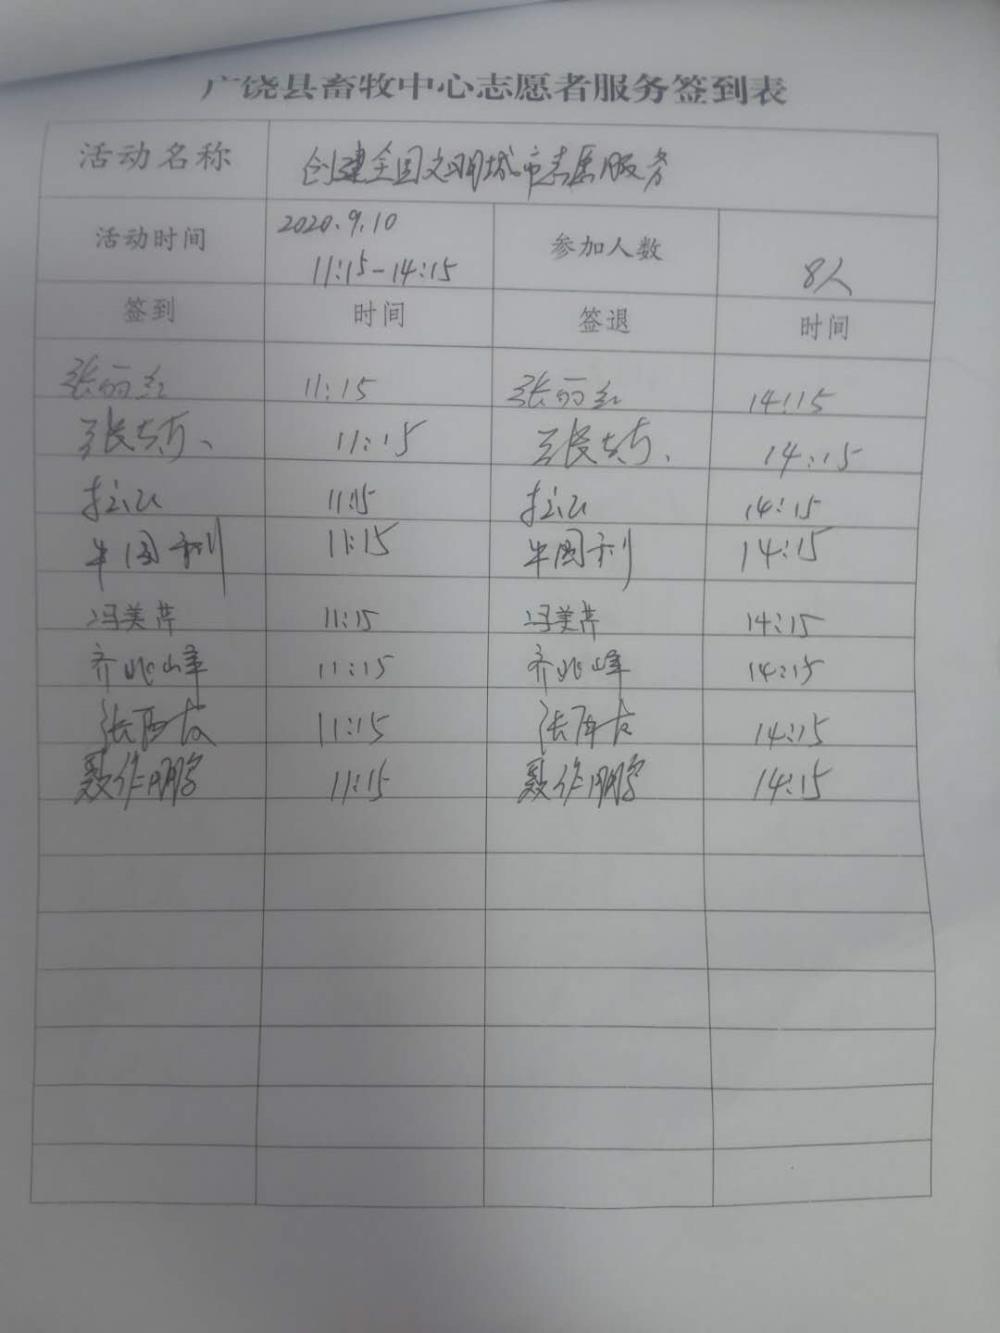 广饶县畜牧中心志愿者服务签到表
活动名称 创建全国文明城市志愿服务
活动时间 2020.9.10 11:15-14:15 参加人数 8人
签到 时间 签退 时间
张丽红 11:15 张丽红 14:15
张 11:15 张 14:15
11:15 14:15
牛国利 11:15 牛国利 14:15
冯美芹 11:15 冯美芹 14:15
齐兆峰 11:15 齐兆峰 14:15
张 11:15 张 14:15
聂作鹏 11:15 聂作鹏 14:15